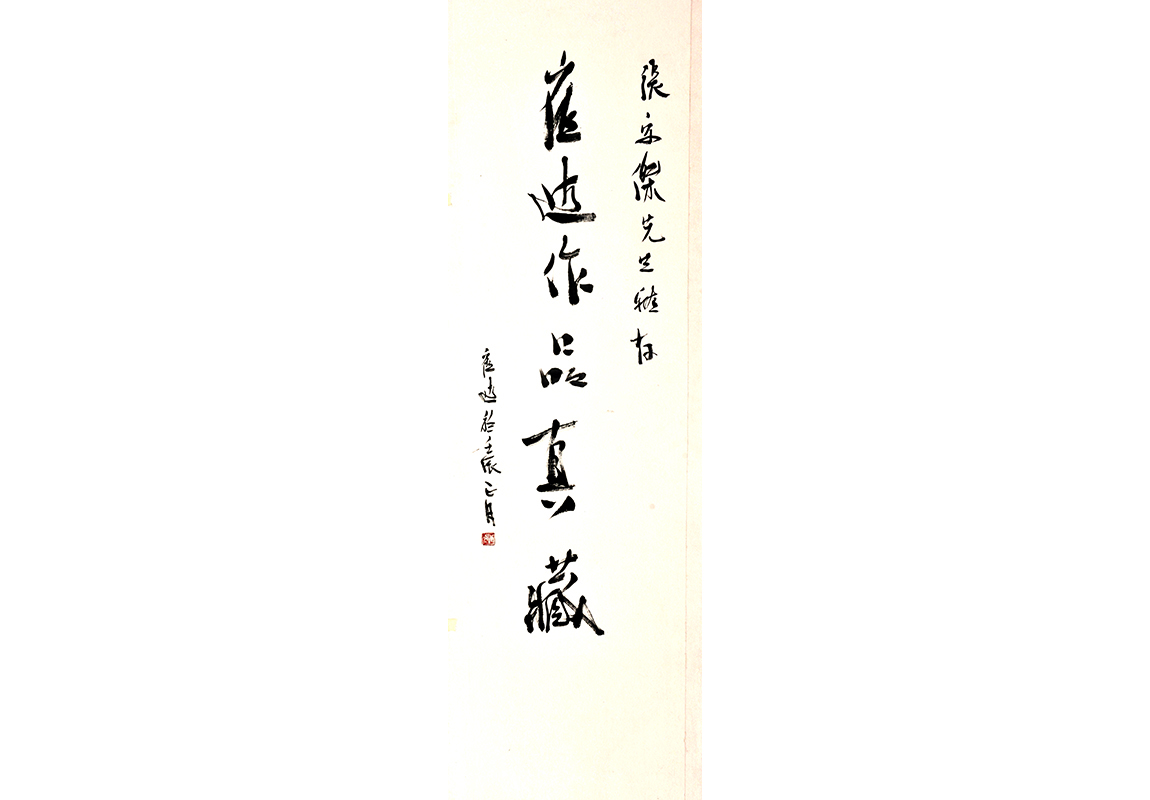 張宗傑先生雅存
崔進作品真藏
崔進於壬辰正月